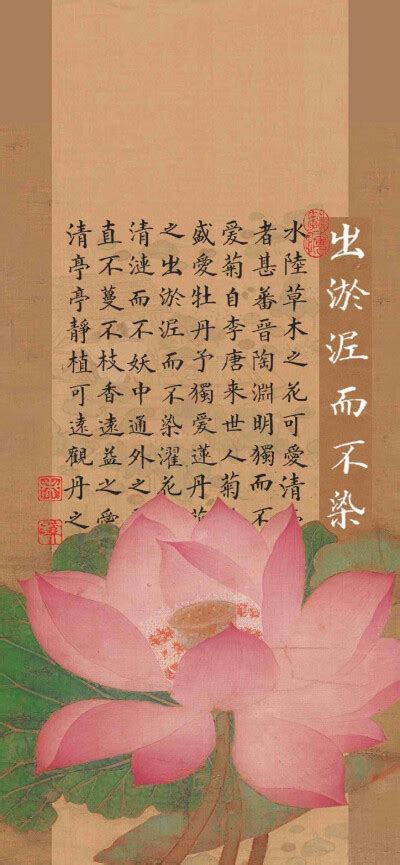 出淤泥而不染
水陸草木之花可愛清
者甚蕃晉陶淵明獨而不
愛菊自李唐来世人菊
盛愛牡丹予獨愛蓮丹
之出淤泥而不染濯花
清漣而不妖中通外之
直不蔓不枝香遠益之愛
清亭亭靜植可遠觀丹之